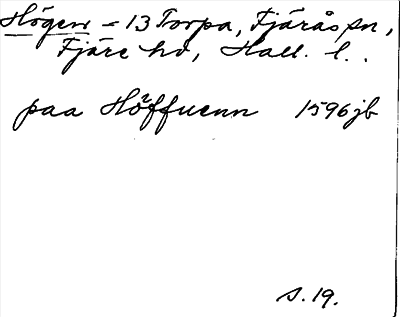 Högen = 13 Torpa, Fjärås sn,
Fjäre hd, Hall. l.
paa Höffuenn 1596 jb
s. 19.